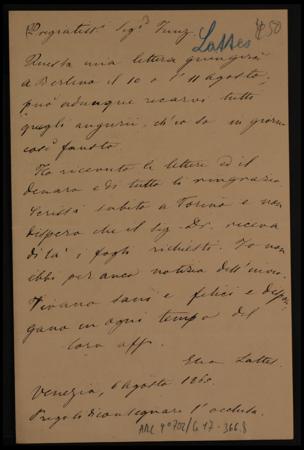 Pregiatiss. Sig.r Zunz
Lattes
50
Questa mia lettera giungerà
a Berlino il 10 o l'11 agosto;
può adunque recarvi tutti
quegli augurii, ch'io so in giorno
così fausto.
Ho ricevuto le lettere ed il
denaro e di tutto la ringrazio.
Scrissi subito a Torino e non
dispero che il Sig. Dr. riceva
di là i fogli richiesti. Io non
ebbi per anco notizia dell'invio.
Vivano sani e felici e dispon
gano in ogni tempo del
loro aff.
Elia Lattes.
Venezia, 6 agosto 1860.
Pregola di consegnare l'acclusa.
ARC 4° 792/G17-366.8